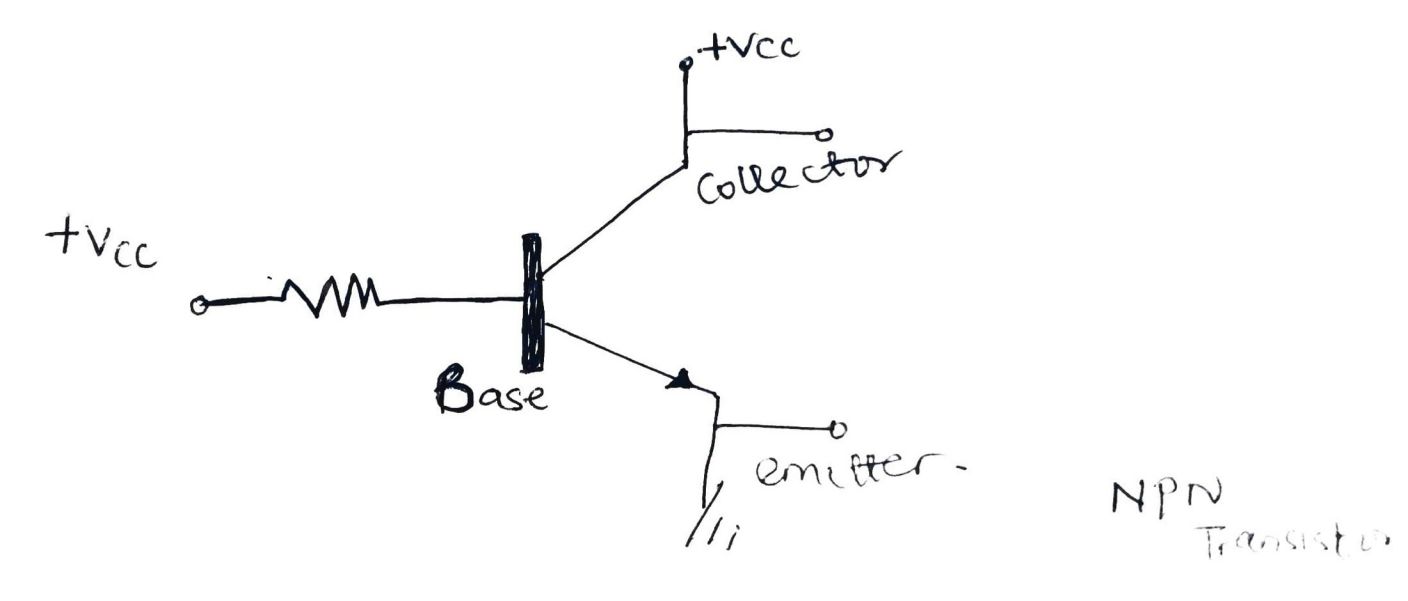 +VCC
Collector
+VCC
Base
emitter.
NPN
Transistor